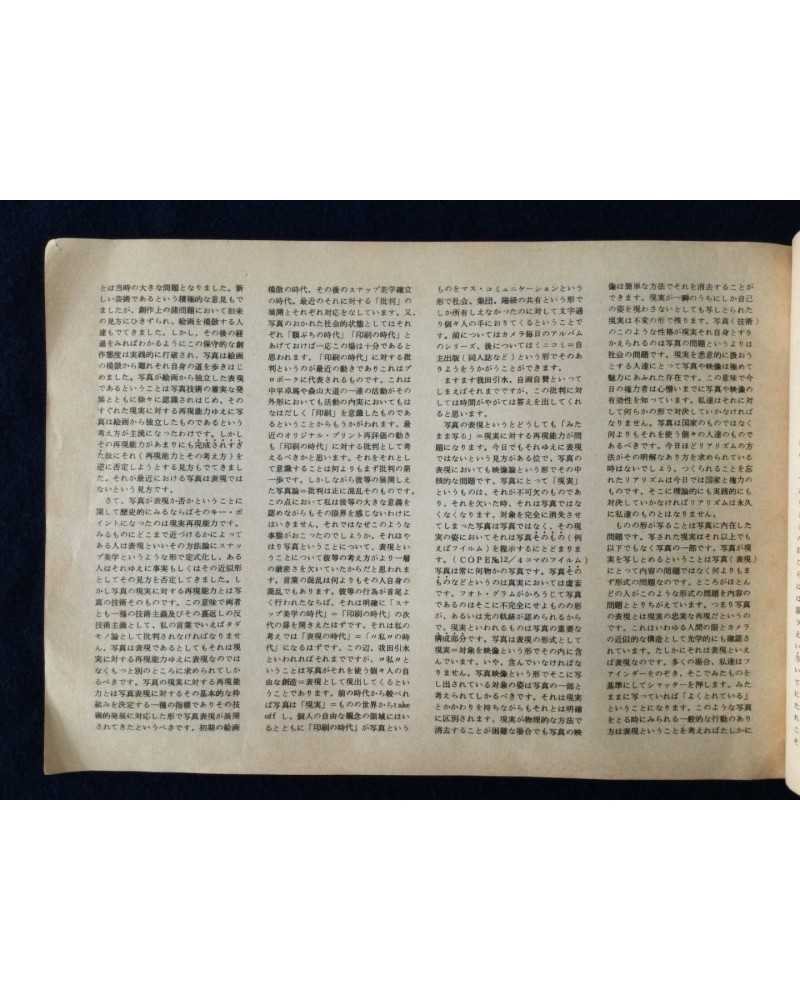 とは当時の大きな問題となりました。新
しい芸術であるという積極的な意見もで
ましたが、創作上の諸問題において旧来
の見方にひきずられ、絵画を模倣する人
達もでてきました。しかし、その後の経
過をみればわかるようにこの保守的な創
作態度は実践的に打破され、写真は絵画
の模倣から離れそれ自身の道を歩きはじ
めました。写真が絵画から独立した表現
であるということは写真技術の確実な発
展とともに徐々に認識されはじめ、その
すぐれた現実に対する再現能力ゆえに写
真は絵画から独立したものであるという
考え方が主流になったわけです。しかし
その再現能力があまりにも完成されすぎ
た故にそれ(再現能力とその考え方)を
逆に否定しようとする見方もでてきまし
た。それが最近における写真は表現では
ないという見方です。
さて、写真が表現か否かということに
関して歴史的にみるならばそのキー・ポ
イントになったのは現実再現能力です。
みるものにどこまで近づけるかによって
ある人は表現といいその方法論にスナッ
プ美学というような形で定式化し、ある
人はそれゆえに事実もしくはその近似形
としてその見方を否定してきました。し
かし写真の現実に対する再現能力とは写
真の技術そのものです。この意味で両者
とも一種の技術主義及びその裏返しの反
技術主義として、私の言葉でいえばタダ
モノ論として批判されなければなりませ
ん。写真は表現であるとしてもそれは現
実に対する再現能力ゆえに表現なのでは
なくもっと別のところに求められてしか
るべきです。写真の現実に対する再現能
力とは写真表現に対するその基本的な枠
組みを決定する一種の指標でありその技
術的発展に対応した形で写真表現が展開
されてきたというべきです。初期の絵画
模倣の時代、その後のスナップ美学確立
の時代、最近のそれに対する「批判」の
展開とそれぞれ対応をなしています。又、
写真のおかれた社会的状態としてはそれ
ぞれ「額ぶちの時代」「印刷の時代」と
あげておけば一応この場は十分であると
思われます。「印刷の時代」に対する批
判というのが最近の動きでありこれはプ
ロボークに代表されるものです。これは
中平卓馬や森山大道の一連の活動がその
外形においても活動の内実においてもは
なはだしく「印刷」を意識したものであ
るということからもうかがわれます。最
近のオリジナル・プリント再評価の動き
も「印刷の時代」に対する批判として考
えるべきかと思います。それをそれとし
て意識することは何よりもまず批判の第
一歩です。しかしながら彼等の展開しえ
た写真論=批判は正に混乱そのものです。
この点において私は彼等の大きな意義を
認めながらもその限界を感じないわけに
はいきません。それではなぜこのような
事態がおこったのでしょうか。それはや
はり写真ということについて、表現とい
うことについて彼等の考え方がより一層
の厳密さを欠いていたからだと思われま
す。言葉の混乱は何よりもその人自身の
混乱でもあります。彼等の行為が首尾よ
く行われたならば、それは明確に「スナ
ップ美学の時代」=「印刷の時代」の次
代の扉を開きえたはずです。それは私の
考えでは「表現の時代」=「〃私〃の時
代」になるはずです。この辺、我田引水
といわれればそれまでですが、〃私〃と
いうことは写真がそれを使う個々人の自
由な創造=表現として現出してくるとい
うことであります。前の時代から較べれ
ば写真は「現実」=ものの世界からtake
off し、個人の自由な観念の領域にはい
るとともに「印刷の時代」が写真という
ものをマス・コミュニケーションという
形で社会、集団、階級の共有という形で
しか所有しえなかったのに対して文字通
り個々人の手におりてくるということで
す。前についてはカメラ毎日のアルバム
のシリーズ、後についてはミニコミ=自
主出版(同人誌など)という形でそのあ
りようをうかがうことができます。
ますます我田引水、自画自賛といって
しまえばそれまでですが、この批判に対
しては時間がやがては答えを出してくれ
ると思います。
写真の表現というとどうしても「みた
まま写る」=現実に対する再現能力が問
題になります。今日でもそれゆえに表現
ではないという見方がある位で、写真の
表現においても映像論という形でその中
核的な問題です。写真にとって「現実」
というものは、それが不可欠のものであ
り、それを欠いた時、それは写真ではな
くなくなります。対象を完全に消失させ
てしまった写真は写真ではなく、その現
実の姿においてそれは写真そのもの(例
えばフイルム)を提示するにとどまりま
す。(COPE№12/4コマのフイルム)
写真は常に何物かの写真です。写真その
ものなどというのは真実においては虚妄
です。フオト・グラムがかろうじて写真
であるのはそこに不完全にせよものの形
が、あるいは光の軌跡が認められるから
で、現実といわれるものは写真の重要な
構成部分です。写真は表現の形式として
現実=対象を映像という形でその内に含
んでいます。いや、含んでいなければな
りません。写真映像という形でそこに写
し出されている対象の姿は写真の一部と
考えられてしかるべきです。それは現実
とかかわりを持ちながらもそれとは明確
に区別されます。現実が物理的な方法で
消去することが困難な場合でも写真の映
像は簡単な方法でそれを消去することが
できます。現実が一瞬のうちにしか自己
の姿を現わさないとしても写しとられた
現実は不変の形で残ります。写真(技術)
のこのような性格が現実それ自身とすり
かえられるのは写真の問題というよりは
社会の問題です。現実を恣意的に扱おう
とする人達にとって写真や映像は極めて
魅力にあふれた存在です。この意味で今
日の権力者は心憎いまでに写真や映像の
有効性を知っています。私達はそれに対
して何らかの形で対決していかなければ
なりません。写真は国家のものではなく
何よりもそれを使う個々の人達のもので
あるべきです。今日ほどリアリズムの方
法がその明解なあり方を求められている
時はないでしょう。つくられることを忘
れたリアリズムは今日では国家と権力の
ものです。そこに理論的にも実践的にも
対決していかなければリアリズムは永久
に私達のものとはなりません。
ものの形が写ることは写真に内在した
問題です。写された現実はそれ以上でも
以下でもなく写真の一部です。写真が現
実を写しとめるということは写真(表現)
にとって内容の問題ではなく何よりもま
ず形式の問題なのです。ところがほとん
どの人がこのような形式の問題を内容の
問題ととりちがえています。つまり写真
の表現とは現実の忠実な再現だというの
です。これはいわゆる人間の眼とカメラ
の近似的な構造として光学的にも確認さ
れています。たしかにそれは表現といえ
ば表現なのです。多くの場合、私達はフ
ァインダーをのぞき、そこでみたものを
基準にしてシャッターを押します。みた
ままに写っていれば「よくとれている」
ということになります。このような写真
をとる時にみられる一般的な行動のあり
方は表現ということを考えればたしかに